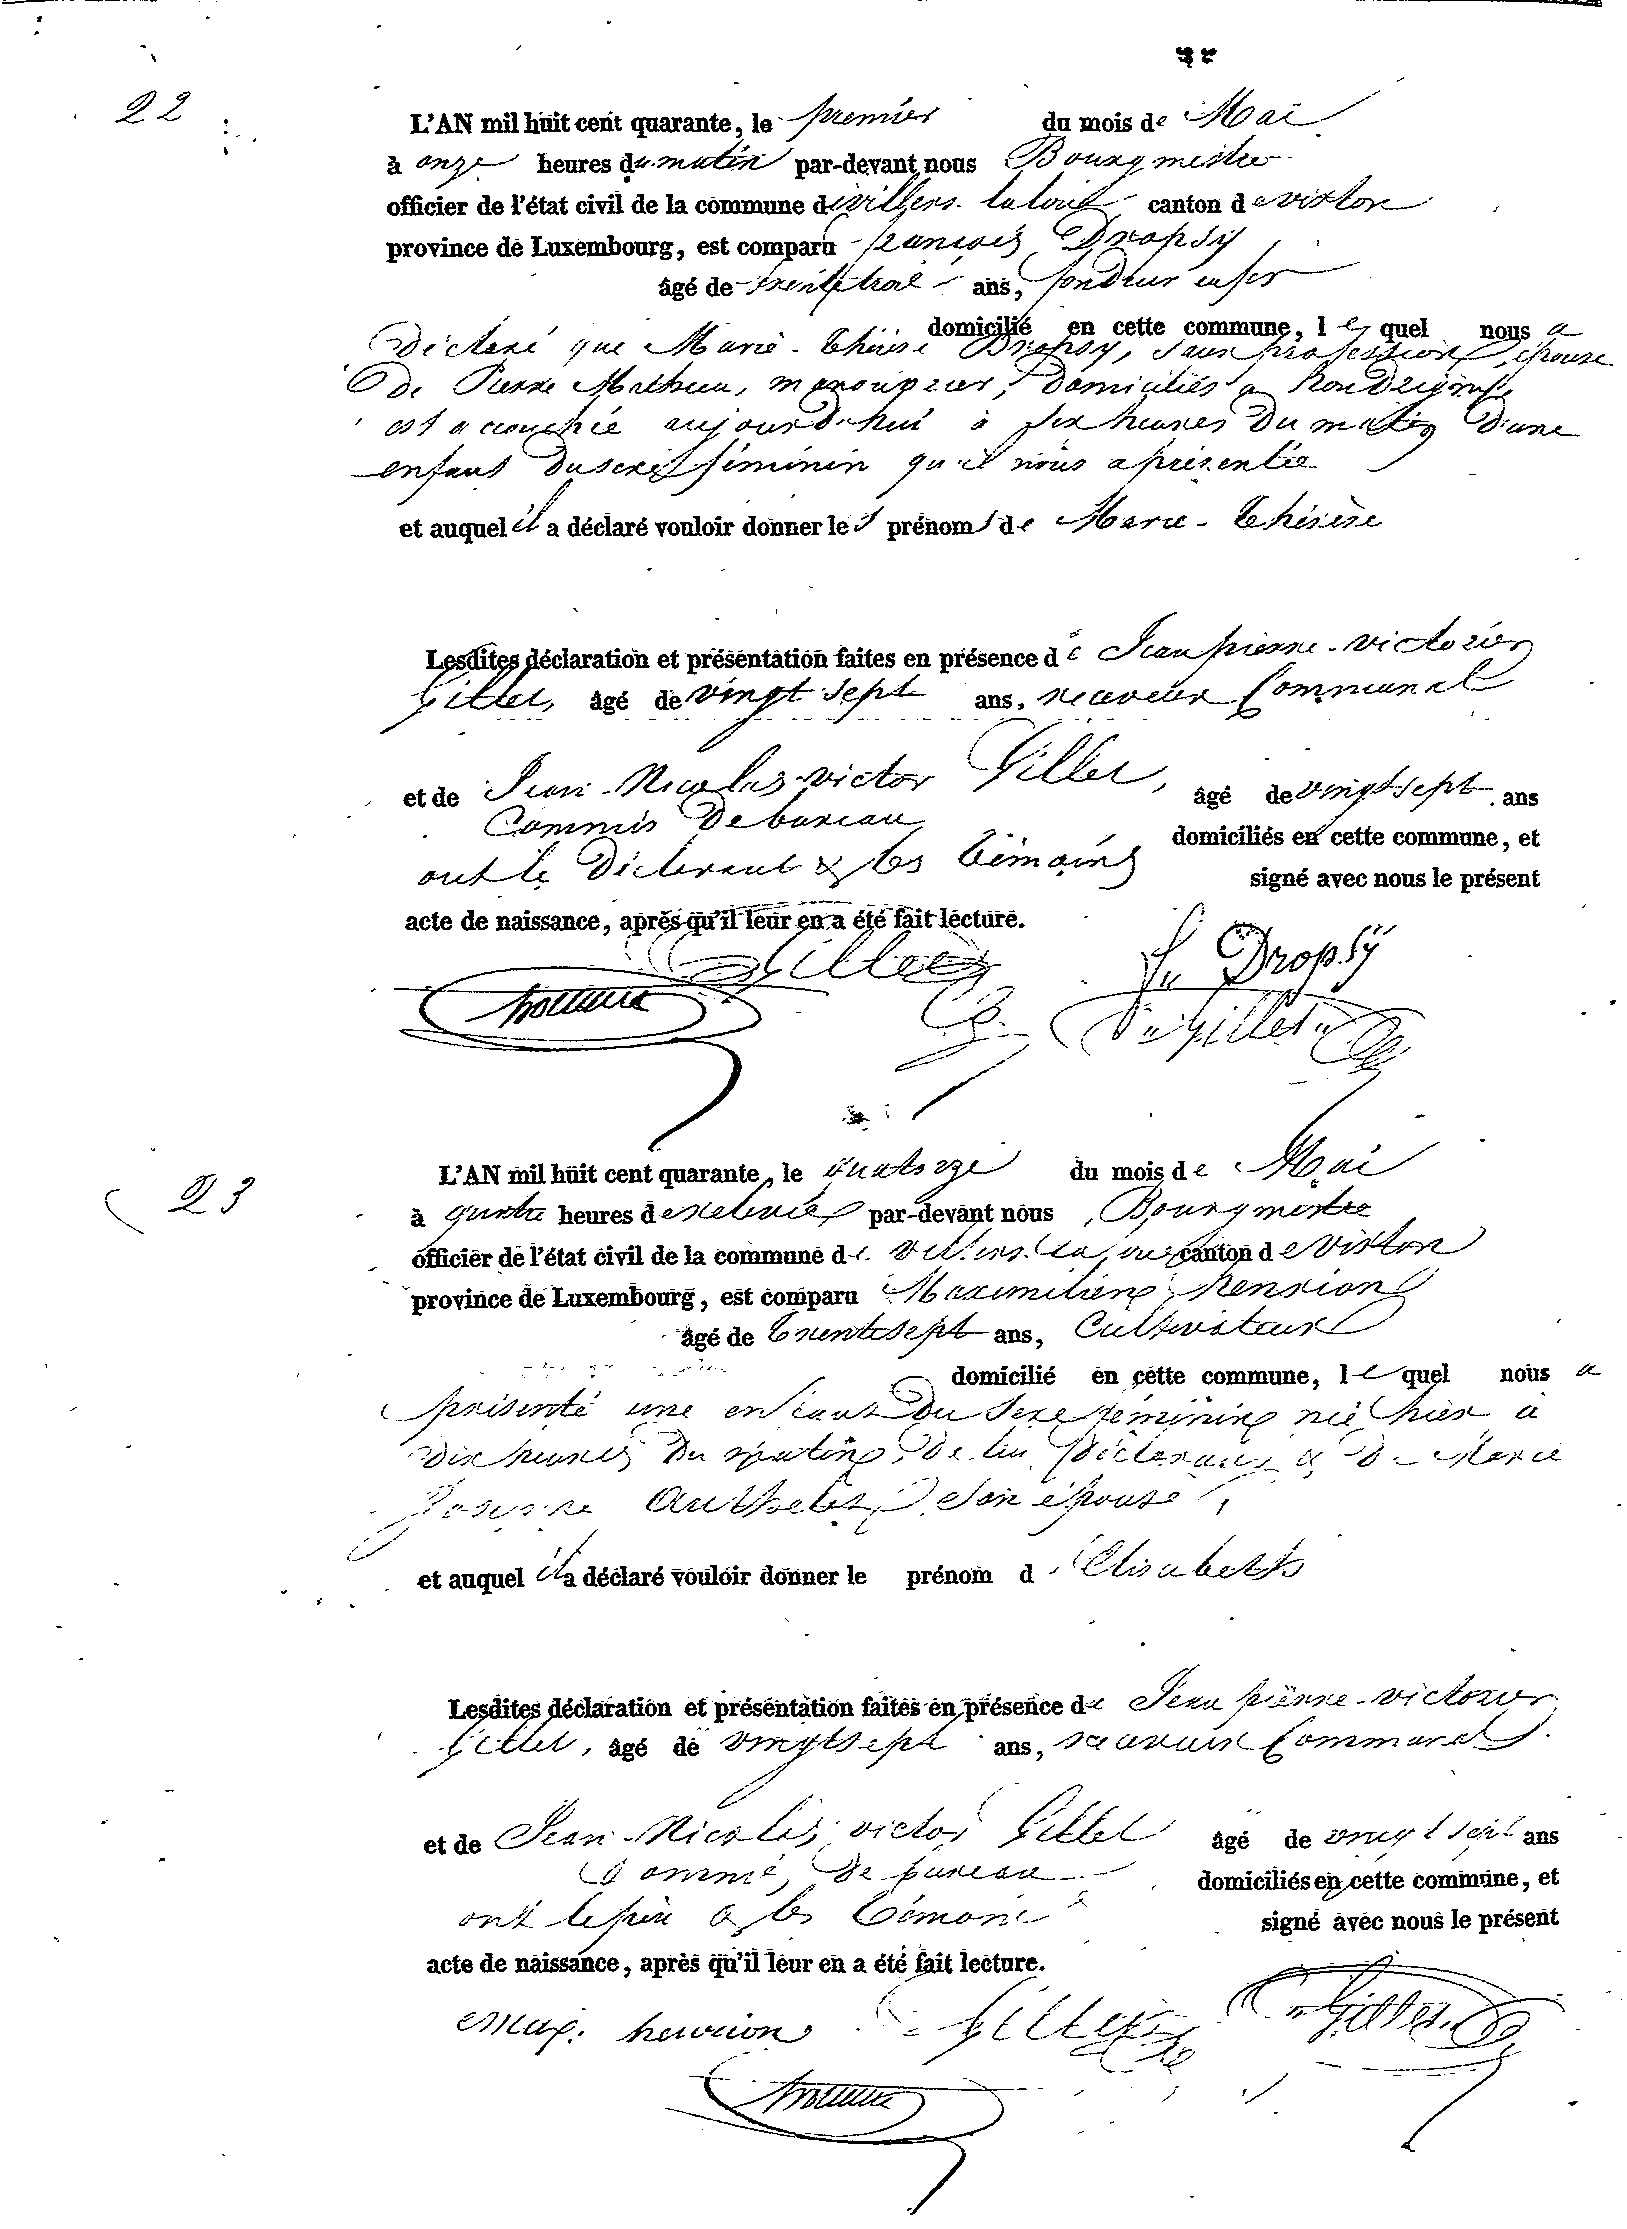 22
L'AN mil huit cent quarante, le premier du mois de Mai
à onze heures du matin par-devant nous Bourgmestre
officier de l'état civil de la commune de villers laloue canton de virton
province de Luxembourg, est comparu françois Dropsy
âgé de trente trois ans, fondeur en fer
domicilié en cette commune, lequel nous a
Déclaré que Marie-Thérèse Dropsy, sans profession, épouse
de Pierre Mathieu, manouvrier, domiciliés a
est accouchée aujourd'hui à six heures du matin d'une
enfant du sexe féminin qu'il nous a présentée
et auquel il a déclaré vouloir donner les prénoms de Marie-Thérèse
Lesdites déclaration et présentation faites en présence de Jean pierre-victorin
Gillet, âgé de vingt sept ans, receveur Communal
et de Jean-Nicolas victor Gillet, âgé de vingt sept ans
Commis De bureau domiciliés en cette commune, et
ont le Déclarant & les témoins signé avec nous le présent
acte de naissance, après qu'il leur en a été fait lecture.
Gillet Fr Dropsy
Gillet
23
L'AN mil huit cent quarante, le quatorze du mois de Mai
à quatre heures de relevée par-devant nous Bourgmestre
officier de l'état civil de la commune de villers la loue canton de virton
province de Luxembourg, est comparu Maximilien henrion
âgé de trente sept ans, Cultivateur
domicilié en cette commune, lequel nous a
présenté une enfant du sexe féminin née hier à
dix heures du matin, de lui Déclarant & de Marie
Josephe son épouse
et auquel il a déclaré vouloir donner le prénom d'Elisabeth
Lesdites déclaration et présentation faites en présence de Jean pierre-victorin
Gillet, âgé de vingt sept ans, receveur Communal
et de Jean-Nicolas victor Gillet âgé de vingt sept ans
Commis de bureau domiciliés en cette commune, et
ont le père & les témoins signé avec nous le présent
acte de naissance, après qu'il leur en a été fait lecture.
Max. henrion Gillet Gillet